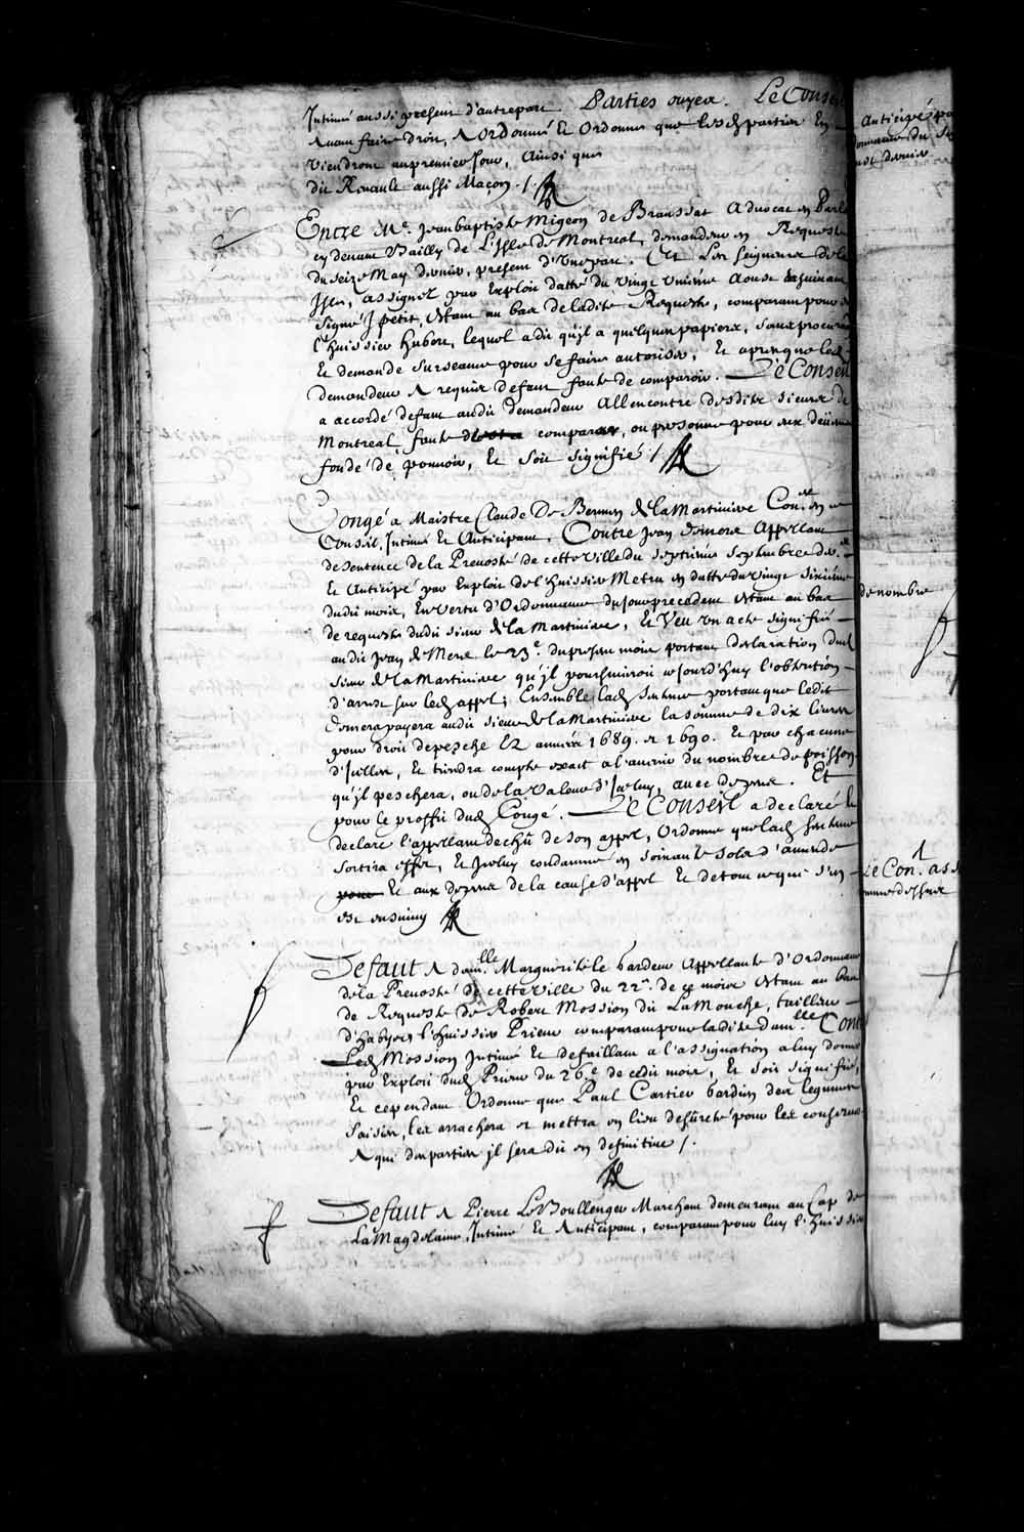 Intimé aussi present d'autrepart. Parties ouyes. Le Conseil
Auant faire droit, A Ordonné Et Ordonne que lesd parties En
Viendront aupremier Jour, Ainsi que
du Renault aussi Maçon ./.
Entre Me. Jean baptiste Migeon de Branssat Aduocat en Parle
cy deuant Bailly de L'Isle de Montreal, demandeur en Requeste
du seize May dernier, present d'Vnepart. Et Les seigneurs de la
Isle, assignez par Exploit datté du vingt vniéme Aoust
signé J petit, Estant au bas de ladite Requeste, comparant pour
l'huissier hubert, lequel a dit qu'jl a quelques papiers, sans procuration
Et demande surseance pour se faire autoriser, Et apres que led
demandeur A requis defaut faute de comparoir. Le Conseil
a accordé defaut audit Demandeur Allencontre desdits sieurs de
Montreal faute de comparoir, ou personne pour eux deüement
fondé de pouuoir, Et soit signifié ./.
Congé a Maistre Claude De Bermen de la Martiniere Coner. en ce
Conseil, Intimé Et Anticipant, Contre Jean Demere Appellant
de sentence de la Preuosté de cette ville du septiéme septembre der.
Et Anticipé par Exploit de l'huissier Metru en datte du vingt sixiéme
dudit mois, En vertu d'Ordonnance du jour precedent Estant au bas
de requeste dudit sieur de la Martiniere, Et Veu vn acte signifié
audit Jean de Mere le 23e. du present mois portant declaration dud
sieur de la Martiniere qu'jl poursuiuroit cejourd'huy l'obtention
d'arrest sur led appel; Ensemble lad sentence portant que ledit
Demere payera audit sieur de la Martiniere la somme de dix liures
pour droit de pesche Es années 1689. et 1690. Et par chacune
d'Jcelles, Et tiendra compte exact a l'auenir du nombre de poisson
qu'jl peschera, ou de la valeur d'Jceluy, auec depens. Et
pour le proffit dud Congé. Le Conseil a declaré Et
declare l'appellant decheu de son appel, Ordonne que lad sentence
sortira effet, Et Jceluy condamne en soixante sols d'amende
Et aux depens de la cause d'appel Et de tout ce qui s'en
est ensuiuy
Defaut A damlle. Margueritte le bardeur Appellante d'Ordonnance
de la Preuosté de cette ville du 22e. de ce mois Estant au bas
de Requeste de Robert Mossion dit La Mouche, tailleur
d'habits, l'huissier Prieur comparant pour ladite damlle. Contre
Led Mossion Intimé Et defaillant a l'assignation a luy donnée
par Exploit dud Prieur du 26e. de cedit mois, Et soit signifié,
Et cependant Ordonne que Paul Cartier Gardien des legumes
saisis, les arrachera et mettra en lieu de sûreté pour les conseruer
A qui des parties jl sera dit en definitiue /.
Defaut A Pierre Le Boullenger Marchant demeurant au Cap de
La Magdelaine, Intimé Et Anticipant, comparant pour luy l'huissier
Anticipé
de nombre
Le Con. ass